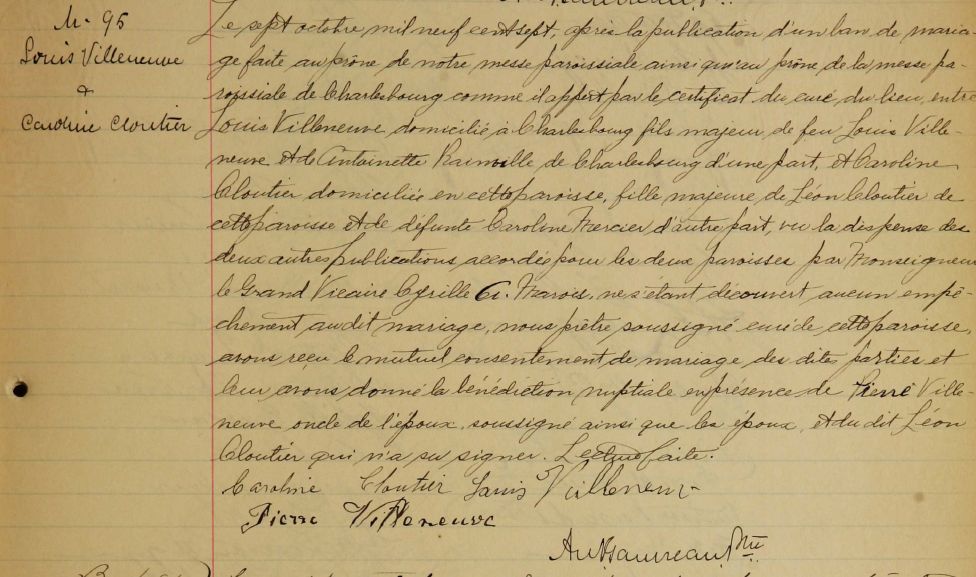 M- 95
Louis Villeneuve
&
Caroline Cloutier
Le sept octobre mil neuf cent sept, après la publication d'un ban de maria-
ge faite au prône de notre messe paroissiale ainsi qu'au prône de la messe pa-
roissiale de Charlesbourg comme il appert par le certificat du curé du lieu, entre
Louis Villeneuve, domicilié à Charlesbourg fils majeur de feu Louis Ville-
neuve et de Antoinette Rainville de Charlesbourg d'une part, et Caroline
Cloutier domiciliée en cette paroisse, fille majeure de Léon Cloutier de
cette paroisse et de défunte Caroline Mercier d'autre part, vu la dispense des
deux autres publications accordés pour les deux paroisses par Monseigneur
le Grand Vicaire Cyrille A. Marois, ne s'étant découvert aucun empê-
chement au dit mariage, nous prêtre soussigné curé de cette paroisse,
avons reçu le mutuel consentement de mariage des dites parties et
leur avons donné la bénédiction nuptiale en présence de Pierre Ville-
neuve oncle de l'époux, soussigné ainsi que les époux, et du dit Léon
Cloutier qui n'a su signer. Lecture faite.
Caroline Cloutier Louis Villeneuv
Pierre Villeneuve
Ptre